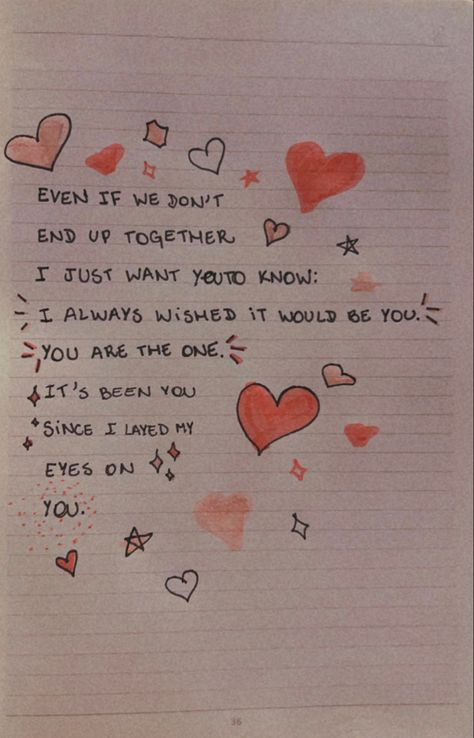 EVEN IF WE DON'T
END UP TOGETHER
I JUST WANT YOUTO KNOW:
I ALWAYS WISHED iT WOULD BE YOU.
YOU ARE THE ONE.
IT'S BEEN YOU
SiNCE I LAYED MY
EYES ON
YOU.
36